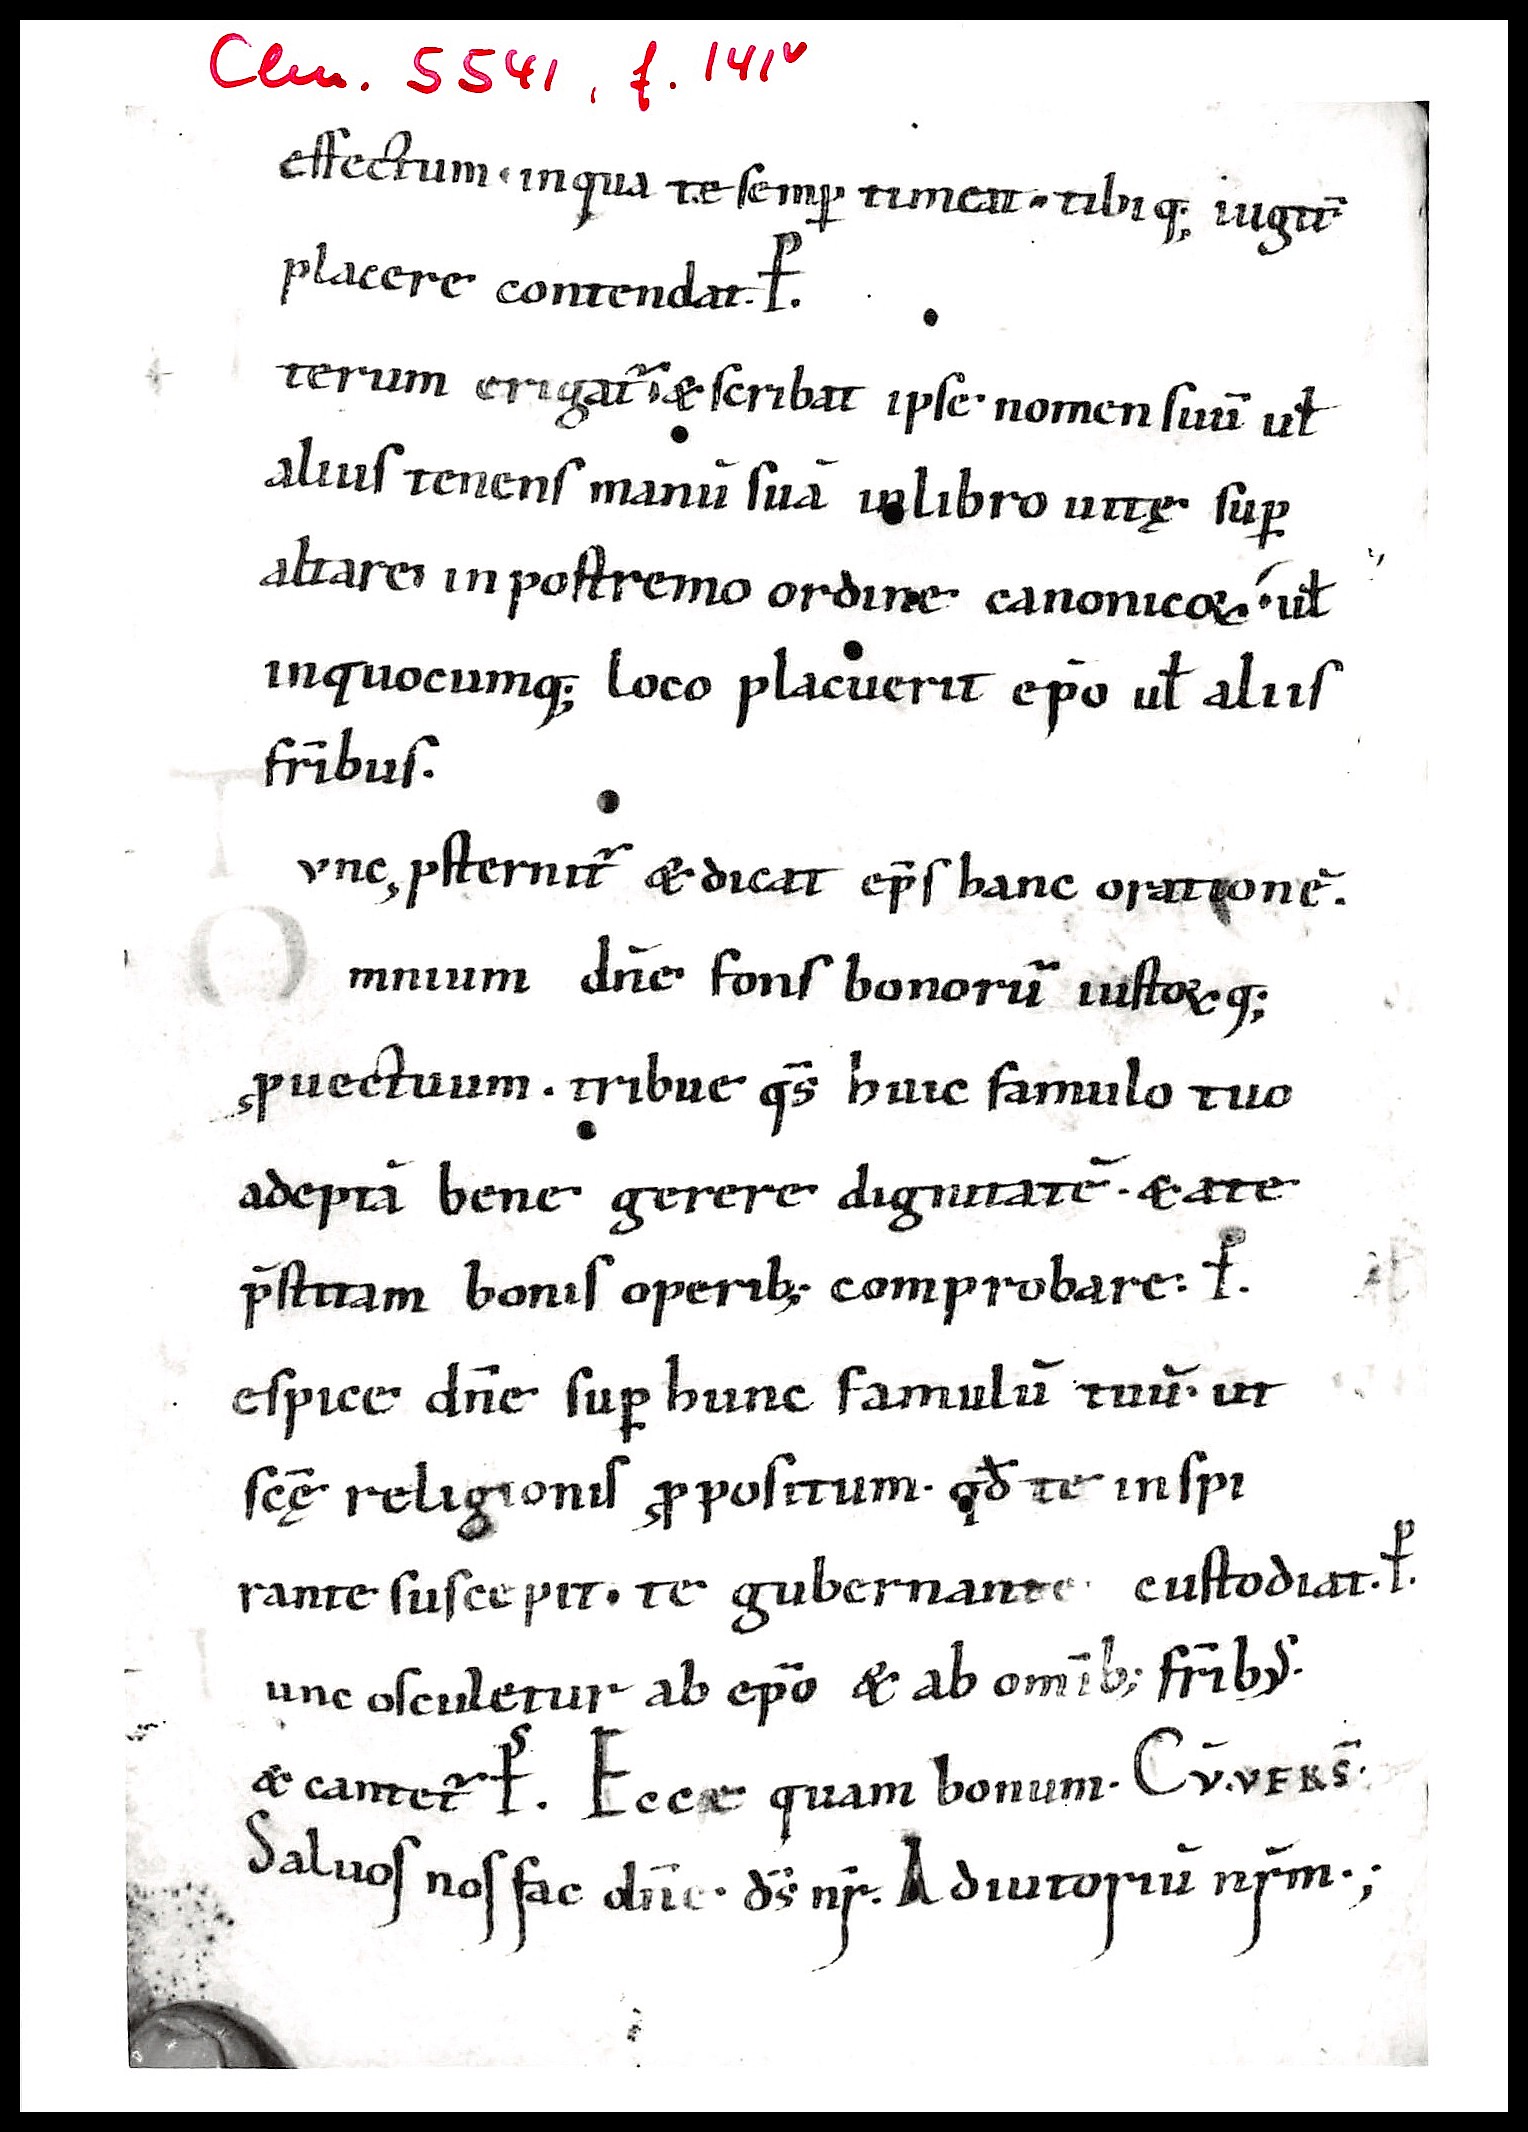 Clm. 5541, f. 141v
effectum · inqua te semꝑ timeat · tibiq; iugit̄
placere contendat. ꝉ p̄.
terum erigat᷑ & scribat ipse nomen suū uł
alius tenens manū suā inlibro uitę suꝑ
altare, in postremo ordine canonicoꝝ · uł
inquocumq; loco placuerit ep̄o uł aliis
fr̄ibus.
vnc ꝓsternit᷑ & dicat ep̄s hanc orationē.
mnium dn̄e fons bonorū iustoꝝq;
ꝓuectuum · tribue q̄s huic famulo tuo
adeptā bene gerere dignitatē · & a te
p̄stitam bonis operib; comprobare: p̄.
espice dn̄e suꝑ hunc famulū tuū · ut
sc̄ę religionis ꝓpositum · qd̄ te inspi
rante suscepit · te gubernante custodiat. p̄.
unc osculetur ab ep̄o & ab om̄ib; fr̄ibus.
& cantet᷑ p̄s. Eccæ quam bonum · Cv̄.vers̄.
Saluos nos fac dn̄e · ds̄ nr̄. Adiutoriū nr̄m · ;